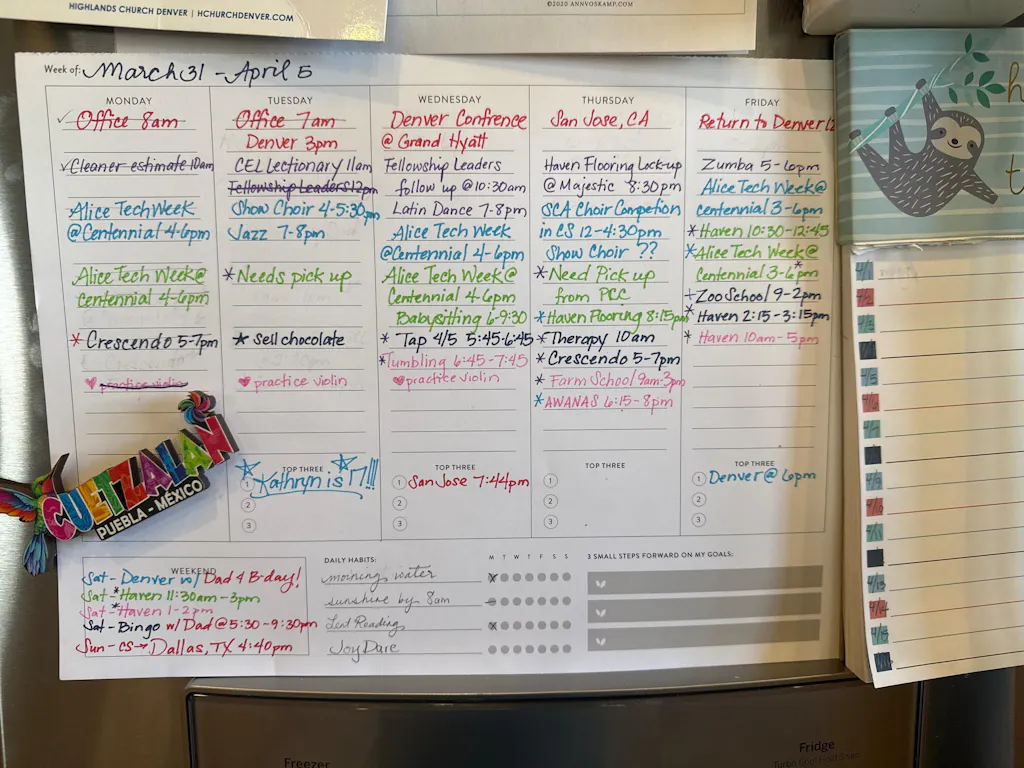 HIGHLANDS CHURCH DENVER | HCHURCHDENVER.COM
©2020 ANNVOSKAMP.COM
Week of: March 31 - April 5
MONDAY
Office 8am
Cleaner estimate 10am
Alice Tech Week
@Centennial 4-6pm
Alice Tech Week @
Centennial 4-6pm
* Crescendo 5-7pm
practice violin
TUESDAY
Office 7am
Denver 3pm
CEL Lectionary 11am
Fellowship Leaders 12pm
Show Choir 4-5:30pm
Jazz 7-8pm
*Needs pick up
* sell chocolate
practice violin
TOP THREE
1 Kathryn is 17!!!
2
3
WEDNESDAY
Denver Confrence
@ Grand Hyatt
Fellowship Leaders
follow up @ 10:30am
Latin Dance 7-8pm
Alice Tech Week
@Centennial 4-6pm
Alice Tech Week @
Centennial 4-6pm
Babysitting 6-9:30
* Tap 4/5 5:45-6:45
*Tumbling 6:45-7:45
practice violin
TOP THREE
1 San Jose 7:44pm
2
3
THURSDAY
San Jose, CA
Haven Flooring Lock-up
@ Majestic 8:30pm
SCA Choir Competion
in CS 12-4:30pm
Show Choir ??
*Need Pick up
from PCC
*Haven Flooring 8:15pm
*Therapy 10am
*Crescendo 5-7pm
* Farm School 9am-3pm
*AWANAS 6:15-8pm
TOP THREE
1
2
3
FRIDAY
Return to Denver 12
Zumba 5-6pm
Alice Tech Week @
centennial 3-6pm
*Haven 10:30-12:45
*Alice Tech Week @
Centennial 3-6pm
+ Zoo School 9-2pm
* Haven 2:15-3:15pm
* Haven 10am-5pm
TOP THREE
1 Denver @ 6pm
2
3
CUETZALAN
PUEBLA - MÉXICO
WEEKEND
Sat - Denver w/ Dad 4 B-day!
Sat - *Haven 11:30am-3pm
Sat - *Haven 1-2pm
Sat - Bingo w/ Dad @ 5:30-9:30pm
Sun - CS → Dallas, TX 4:40pm
DAILY HABITS:
M T W T F S S
morning water
sunshine by 8am
Lent Reading
Joy Dare
3 SMALL STEPS FORWARD ON MY GOALS:
4/1
4/2
4/3
4/5
4/6
4/7
4/9
4/10
4/11
4/13
4/14
4/15
Freezer
Fridge